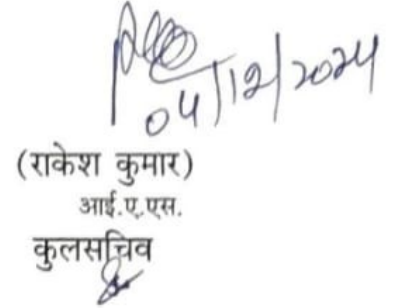 04/12/2024
(राकेश कुमार)
आई.ए.एस.
कुलसचिव